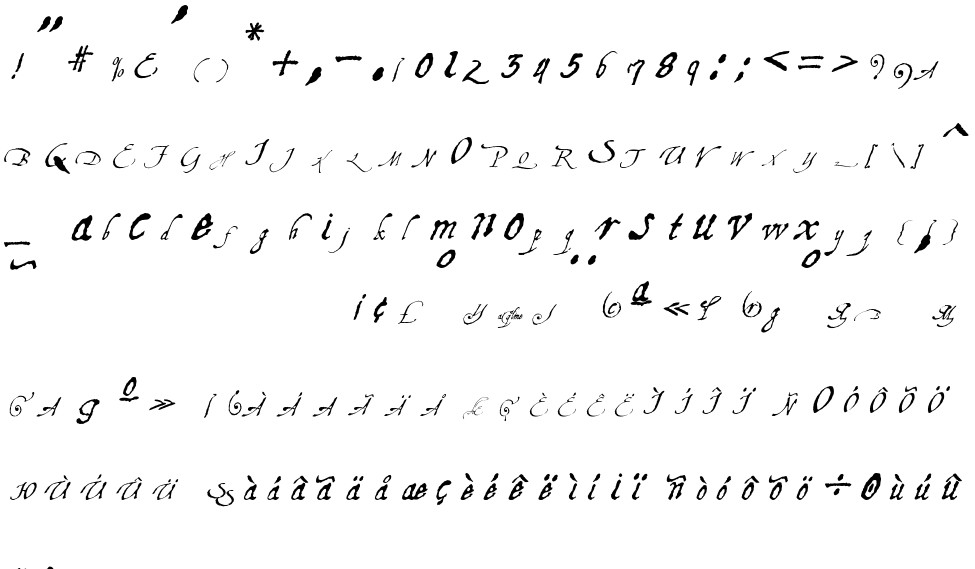 ! " # % & ' ( ) * + , - . / 0 1 2 3 4 5 6 7 8 9 : ; < = > ? @ A
B C D E F G H I J K L M N O P Q R S T U V W X Y Z [ \ ] ^
_ a b c d e f g h i j k l m n o p q r s t u v w x y z { | }
¡ ¢ £ ª «
A g º » À Á Â Ã Ä Å Æ Ç È É Ê Ë Ì Í Î Ï Ñ O Ó Ô Õ Ö
Ù Ú Û Ü à á â ã ä å æ ç è é ê ë ì í î ï ñ ò ó ô õ ö ÷ ø ù ú û